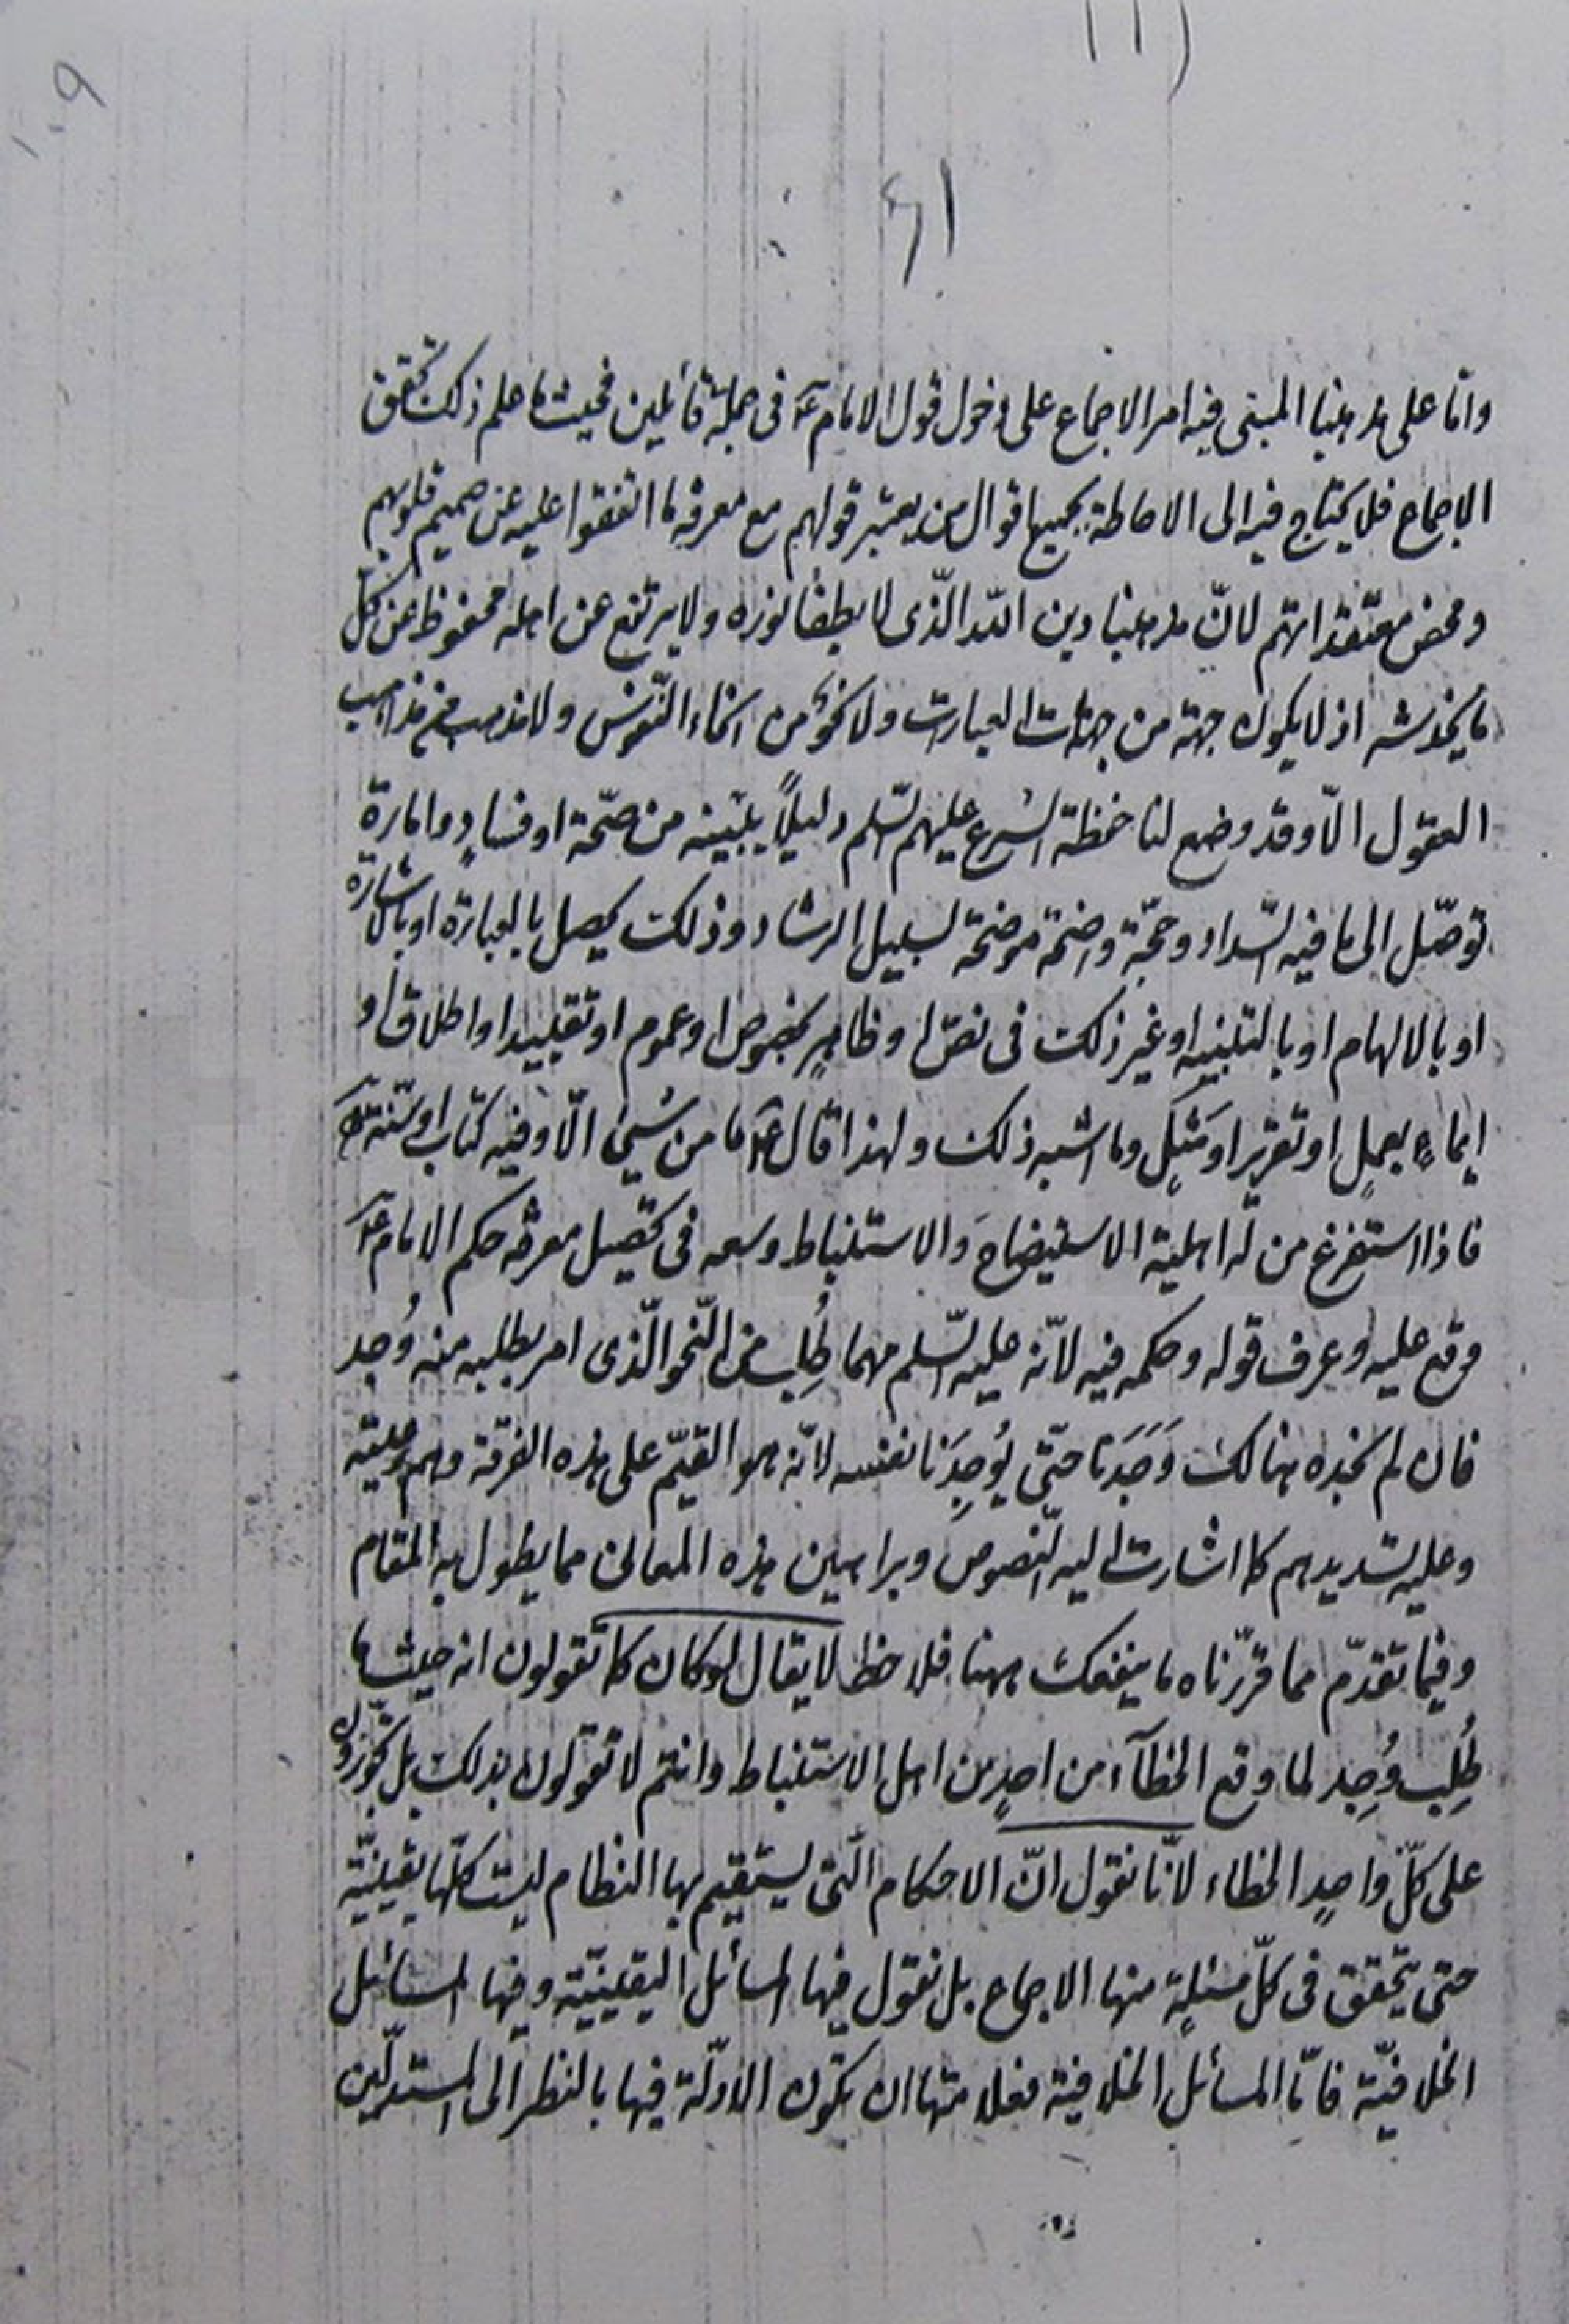 ٦١
وامّا على مذهبنا المبنى فيه امر الاجماع على دخول قول الامام عَ فى جملة قائلين فحيث ما علم ذلك تحقق
الاجماع فلا يحتاج فيه الى الاحاطة بجميع اقوال من يعتبر قولهم مع معرفة ما اتفقوا عليه عن صميم قلوبهم
ومحض معتقداتهم لانّ مذهبنا دين اللّه الّذى لا يطفأ نوره ولا يرتفع عن اهله محفوظ عن كل
ما يخدشه اذ لا يكون جهة من جهات العبارت ولا نحوٌ من انحاء النّفوس ولا مذهب من مذاهب
العقول الّا وقد وضع لنا حفظة الشرع عليهم السّلم دليلاً يبيّنه من صحّة او فسادٍ وامارة
توصّل الى ما فيه السّداد وحجّة واضحة موضحة لسبيل الرشاد وذلك يحصل بالعبارة او بالاشارة
او بالالهام او بالتنبيه او غير ذلك فى نصّ او ظاهرٍ بخصوص او عموم او تقييد او اطلاق او
ايماءٍ بعملٍ او تقرير او مَثَلٍ وما اشبه ذلك ولهذا قال عَ ما من شيئ الّا وفيه كتاب او سنّة
فاذا استفرغ من له اهلية الاستيضاح وَالاستنباط وسعه فى تحصيل معرفة حكم الامام عَ
وقع عليه وعرف قوله وحكمه فيه لانّه عليه السّلم مهما طُلِب من النّحو الّذى امر بطلبه منه وُجد
فان لم نجده هنالك وَجَدَنا حتّى يُوجِدَنا نفسه لانّه هو القيّم على هذه الفرقة وهم رعيته
وعليه تسديدهم كما اشارت اليه النّصوص وبراهين هذه المعانى مما يطول به المقام
وفيما تقدّم مما قرّرناه ما ينفعك ههنا فلاحظ لا يقال لو كان كما تقولون انه حيث ما
طُلِب وُجِد لما وقع الخطآء من احدٍ من اهل الاستنباط وانتم لا تقولون بذلك بل تجوّزون
على كلّ واحدٍ الخطاء لانّا نقول انّ الاحكام الّتى يستقيم بها النظام ليست كلّها يقينيّة
حتى يتحقق فى كلّ مسئلةٍ منها الاجماع بل نقول فيها المسائل اليقينيّة وفيها المسائل
الخلافيّة فامّا المسائل الخلافية فعلامتها ان تكون الادلّة فيها بالنظر الى المستدلّين